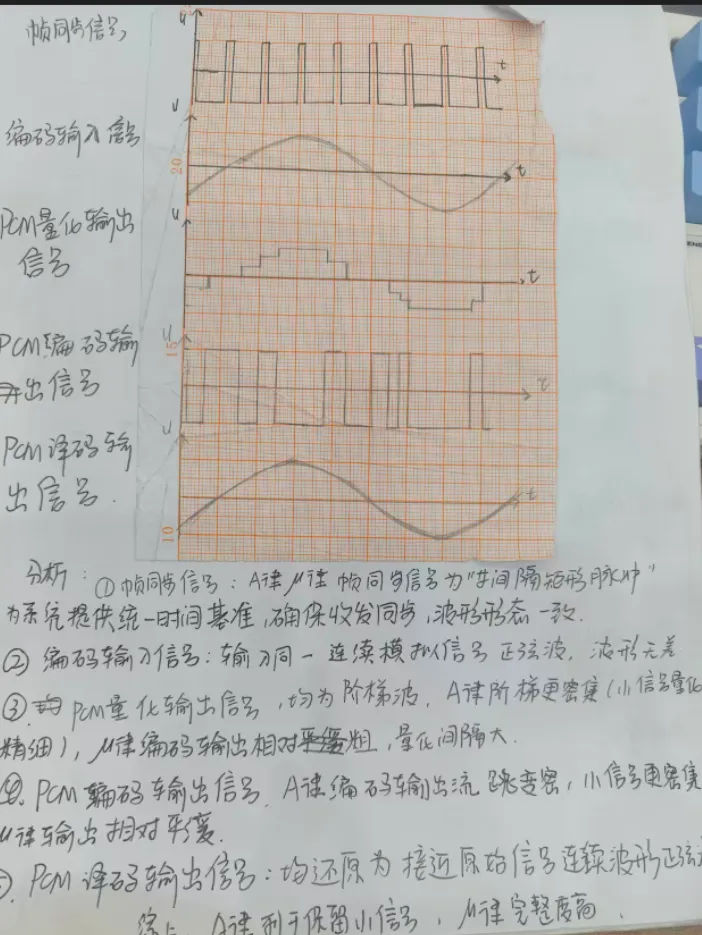 帧同步信号
u
t
编码输入信号
u
20
t
PCM量化输出
信号
u
t
PCM编码输
出信号
u
15
t
PCM译码输
出信号.
u
10
t
分析: ①帧同步信号: A律μ律帧同步信号为"等间隔矩形脉冲"
为系统提供统一时间基准,确保收发同步,波形形态一致.
② 编码输入信号: 输入同一连续模拟信号正弦波, 波形无差
③. PCM量化输出信号,均为阶梯波, A律阶梯更密集(小信号量化
精细), μ律编码输出相对粗,量化间隔大.
④. PCM编码输出信号. A律编码输出流跳变密,小信号更密集
μ律输出相对平缓.
PCM译码输出信号: 均还原为接近原始信号连续波形正弦
综上 A律利于保留小信号, μ律完整度高.